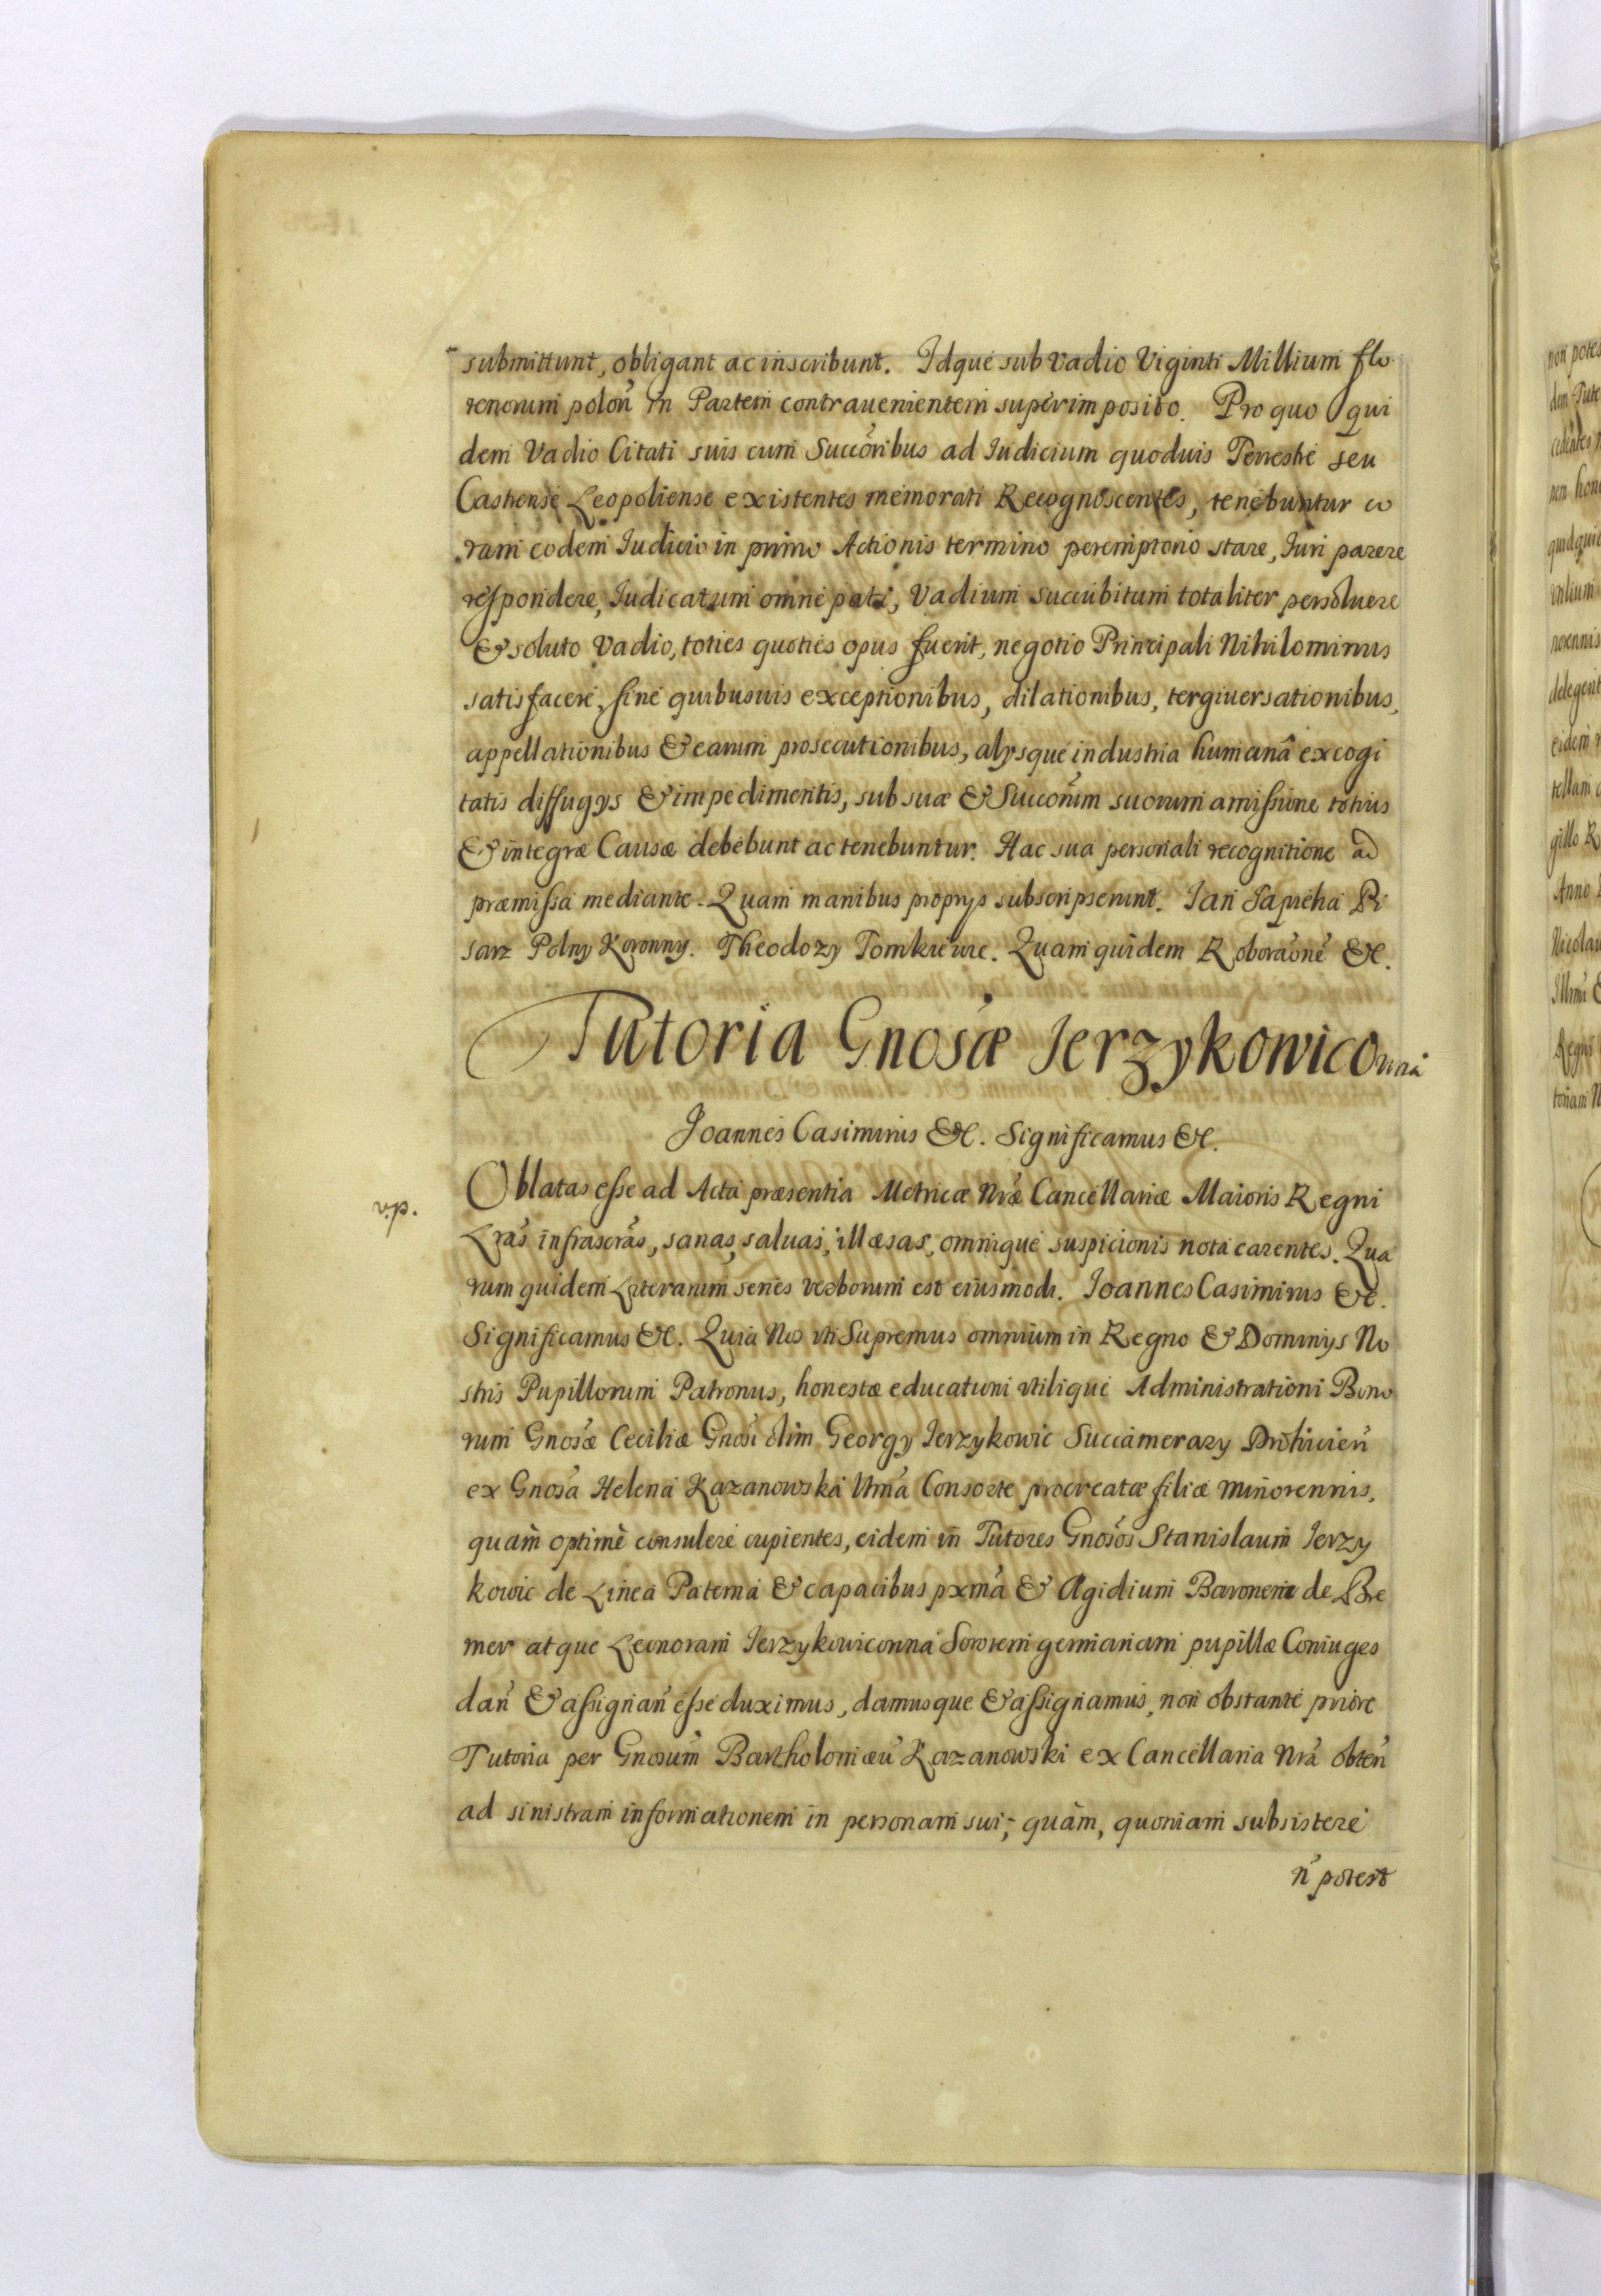 submittunt, obligant ac inscribunt. Idque sub vadio Viginti Millium flo
renorum polon̄ in Partem contrauenientem superimposito. Pro quo qui
dem Vadio Citati suis cum Succōribus ad Iudicium quoduis Terrestre seu
Castrense Leopoliense existentes memorati Recognoscentes, tenebuntur co
ram eodem Iudicio in primo Actionis termino peremptorio stare, Iuri parere
respondere, Iudicatum omne pati, Vadium succubitum totaliter persoluere
& soluto Vadio, toties quoties opus fuerit, negotio Principali Nihilominus
satisfacere, sine quibusuis exceptionibus, dilationibus, tergiuersationibus,
appellationibus & earum prosecutionibus, alysque industria humanâ excogi
tatis diffugys & impedimentis, sub suæ & Succōrum suorum amissione totius
& integræ Causæ debebunt ac tenebuntur. Hac sua personali recognitione ad
præmissa mediante. Quam manibus proprys subscripserunt. Jan Sapieha Pi
sarz Polny Koronny. Theodozy Tomkiewic. Quam quidem Roborāonē &c.
Tutoria Gnosæ Jerzykowiconna
Joannes Casimirus &c. Significamus &c.
v.p.
Oblatas esse ad Acta præsentia Metricæ Nræ Cancellariæ Maioris Regni
Lras infrascras, sanas, saluas, illæsas, omnique suspicionis nota carentes. Qua
rum quidem Literarum series verborum est eiusmodi. Joannes Casimirus &c.
Significamus &c. Quia Nos vti Supremus omnium in Regno & Dominys No
stris Pupillorum Patronus, honestæ educationi vtilique Administrationi Bono
rum Gnosæ Ceciliæ Gnosi olim Georgy Jerzykowic Succamerary Drohicien̄
ex Gnosa Helena Kazanowska Vtma Consorte procreatæ filiæ minorennis,
quam optimè consulere cupientes, eidem in Tutores Gnosos Stanislaum Jerzy
kowic de Linea Paterna & capacibus pxma & Ægidium Baronem de Bre
mer atque Leonoram Jerzykowiconna Sororem germanam pupillæ Coniuges
dan̄ & assignan̄ esse duximus, damusque & assignamus, non obstante priore
Tutoria per Gnosum Bartholomæū Kazanowski ex Cancellaria Nra obten̄
ad sinistram informationem in personam sui; quàm, quoniam subsistere
n̄ potest